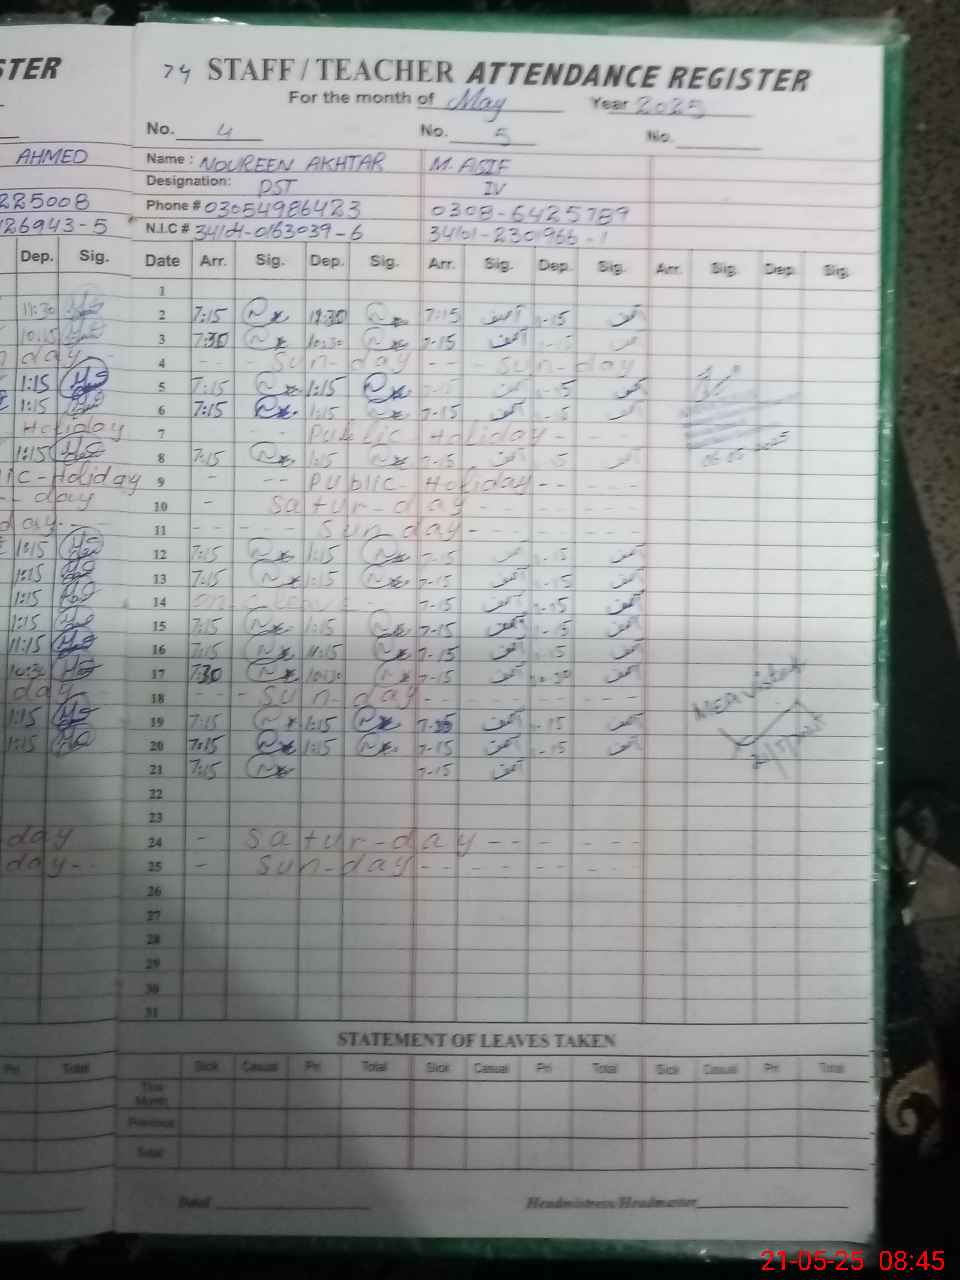 STER
74 STAFF / TEACHER ATTENDANCE REGISTER
For the month of May Year 2025
No. 4 No. 5 No.
AHMED Name : NOUREEN AKHTAR M. ASIF
Designation: PST IV
225008 Phone # 03054986423 0308-6425789
126943-5 N.I.C # 34104-0163039-6 34101-2301966-1
Dep. Sig. Date Arr. Sig. Dep. Sig. Arr. Sig. Dep. Sig. Arr. Sig. Dep. Sig.
1
11:30 2 7:15 11:30 7:15 آصف 1-15 آصف
10:15 3 7:30 10:30 7-15 آصف 1-15
day 4 - - Sun-day - - - Sun-day
1:15 5 7:15 1:15 7-15 آصف 1-15 آصف
1:15 6 7:15 1:15 7-15 آصف 1-15 آصف
Holiday 7 - - Public Holiday - -
1:15 8 7:15 1:15 7-15 آصف 15 آصف
06-05-2025
ic-Holiday 9 - - - Public-Holiday - - - -
- day 10 - Satur-day - - - - - -
day - - 11 - - - - - Sun day - - - - - -
1:15 12 7:15 1:15 7-15 آصف 1-15 آصف
1:15 13 7:15 1:15 7-15 آصف 1-15 آصف
1:15 14 on c leave - 7-15 آصف 1-15 آصف
1:15 15 7:15 1:15 7-15 آصف 1-15 آصف
11:15 16 7:15 11:15 7-15 آصف 15 آصف
10:30 17 7:30 10:30 7-15 آصف 10-30 آصف
day 18 - - - Sun-day - - - - - -
MEA visited
1:15 19 7:15 1:15 7-15 آصف 1-15 آصف
1:15 20 7:15 1:15 7-15 آصف 1-15 آصف
21 7:15 7-15 آصف
22
23
day 24 - Satur-day - - - - - -
day - - 25 - Sun-day - - - - - -
26
27
28
29
30
31
STATEMENT OF LEAVES TAKEN
Pri Total Sick Casual Pri Total Sick Casual Pri Total Sick Casual Pri Total
This Month
Previous
Total
Dated Headmistress/Headmaster
21-05-25 08:45